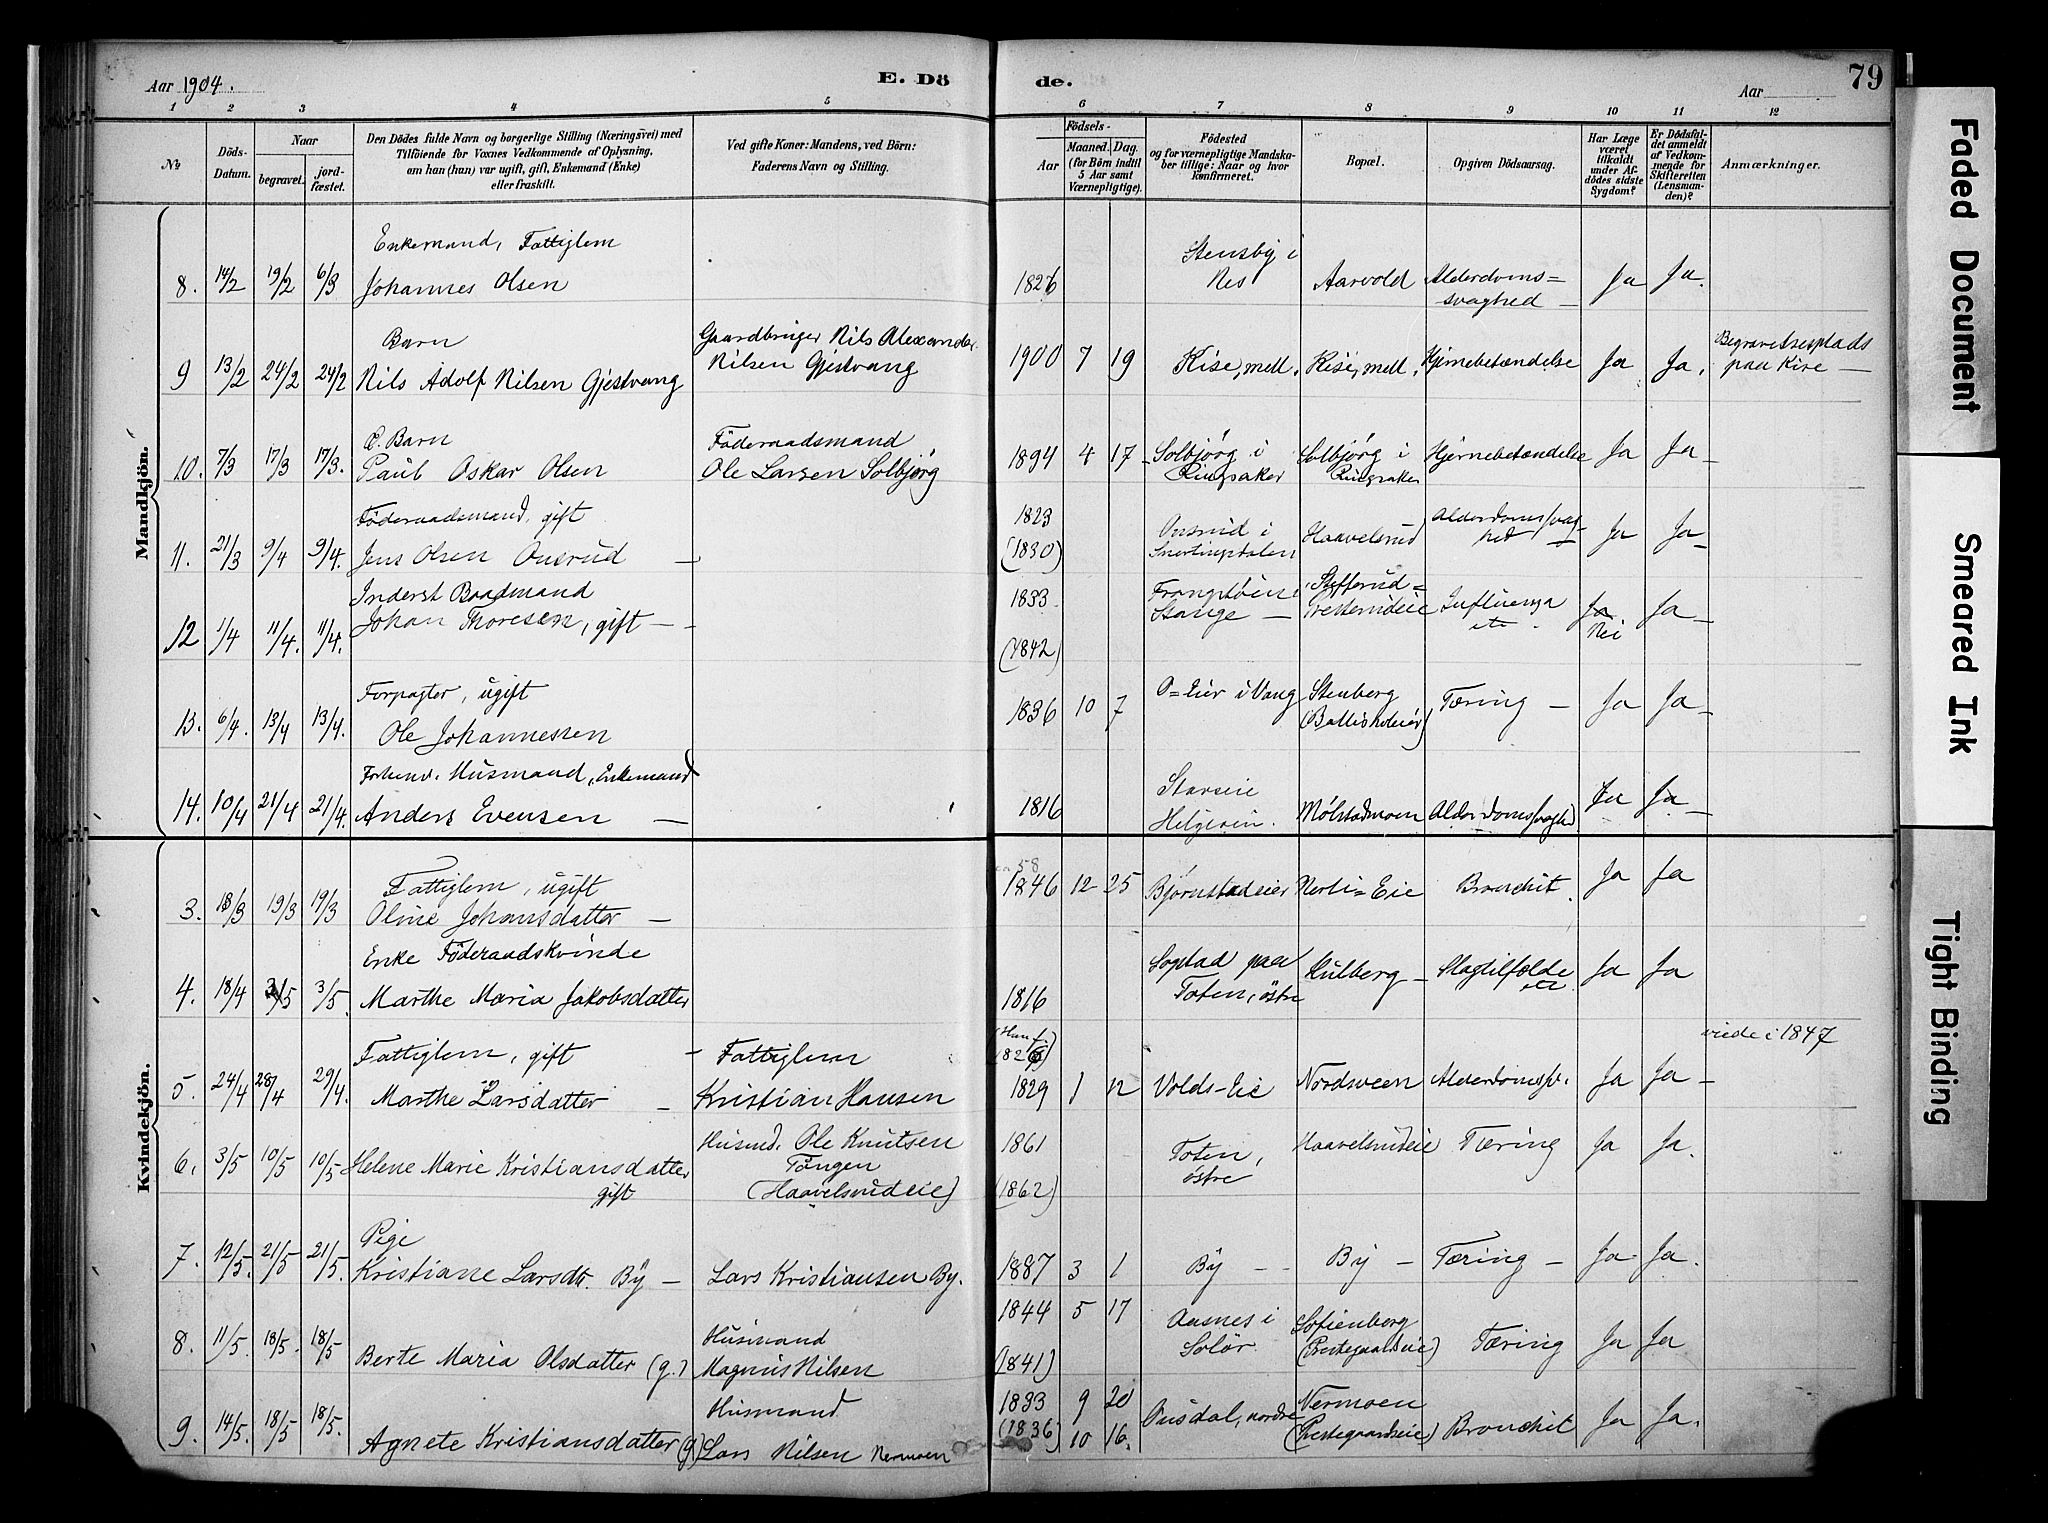 Aar 1904.
E. Dö
de.
Aar
79
1 2 3 4 5 6 7 8 9 10 11 12
No
Döds-Datum.
Naar
begravet.
jordfæstet.
Den Dödes fulde Navn og borgerlige Stilling (Næringsvei) med
Tilföiende for Voxnes Vedkommende af Oplysning,
om han (hun) var ugift, gift, Enkemand (Enke)
eller fraskilt.
Ved gifte Koner: Mandens, ved Börn:
Faderens Navn og Stilling.
Födsels-
Aar
Maaned. Dag.
(for Börn indtil
5 Aar samt
Værnepligtige).
Födested
og for værnepligtige Mandskaber tillige: Naar og hvor
konfirmeret.
Bopæl.
Opgiven Dödsaarsag.
Har Læge
været
tilkaldt
under Afdödes sidste
Sygdom?
Er Dödsfaldet anmeldt
af Vedkommende for
Skifteretten
(Lensmanden)?
Anmærkninger.
Mandkjön.
Enkemand, Fattiglem
Stensby i
8. 14/2 19/2 6/3 Johannes Olsen 1826 Nes Aarvold Alderdoms=
svaghed — Ja Ja.
Barn Gaardbruger Nils Alexander
9 13/2 24/2 24/2 Nils Adolf Nilsen Gjestvang Nilsen Gjestvang 1900 7 19 Kise, mell. Kise, mell. Hjernebetændelse Ja Ja. Begravelsesplads
paa Kise —
Barn Föderaadsmand
10. 7/3 17/3 17/3. Paul Oskar Olsen Ole Larsen Solbjörg 1894 4 17 Solbjörg i
Ringsaker Solbjörg i
Ringsaker Hjernebetændelse Ja Ja —
Föderaadsmand, gift 1823
11. 21/3 9/4 9/4. Jens Olsen Onsrud — (1830) Onsrud i
Snertingdalen Haavelsrud Alderdomssvag-
hed Ja Ja —
Inderst Baadmand
12 1/4 11/4. 11/4. Johan Thoresen, gift — 1833
(1842) Stange — Influenza
etc. Ja
Nei Ja —
Forpagter, ugift
13. 6/4. 13/4 13/4. Ole Johannessen 1836 10 7 i Vang Stenberg
Tæring — Ja Ja —
Husmand, Enkemand
14. 10/4 21/4 21/4. Anders Evensen — 1816 Mölstadmoen Alderdomssvaghed Ja Ja —
Kvindekjön.
58
Fattiglem, ugift
3. 18/3 19/3 19/3 Oline Johansdatter — 1846 12 25 Björnstadeier Bronchit. Ja Ja
Enke Föderaadskvinde
4. 18/4 3/5 3/5. Marthe Maria Jakobsdatter 1816 paa
Toten, östre Hulberg — Slagtilfælde
etc Ja Ja
Fattiglem, gift — Fattiglem
5. 24/4 28/4 29/4. Marthe Larsdatter — Kristian Hansen 1829 1 12 Volds-Eie Nordsveen Alderdomssv. Ja Ja — viede i 1847
6. 3/5 10/5 10/5 Helene Marie Kristiansdatter
gift Husmd. Ole Knutsen
Tangen
(Haavelsrudeie) 1861
(1862) Toten,
östre Haavelsrudeie Tæring Ja Ja.
Pige
7. 12/5. 21/5 21/5. Kristiane Larsdtr. By — Lars Kristiansen By. 1887 3 1 By — By — Tæring — Ja Ja.
8. 11/5. 18/5. 18/5 Berte Maria Olsdatter (g.) Husmand
Magnus Nilsen 1844 5 17
(1841) Aasnes i
Solör Sofienberg
(Prestegaardseie) Tæring Ja Ja
9. 14/5. 18/5 18/5. Agnete Kristiansdatter (g) Husmand
Lars Nilsen Nermoen 1833 9 20
(1836) 10 16. Onsdal, nordre Nermoen
(Prestegaardseie) Bronchit Ja Ja.
Faded Document
Smeared Ink
Tight Binding